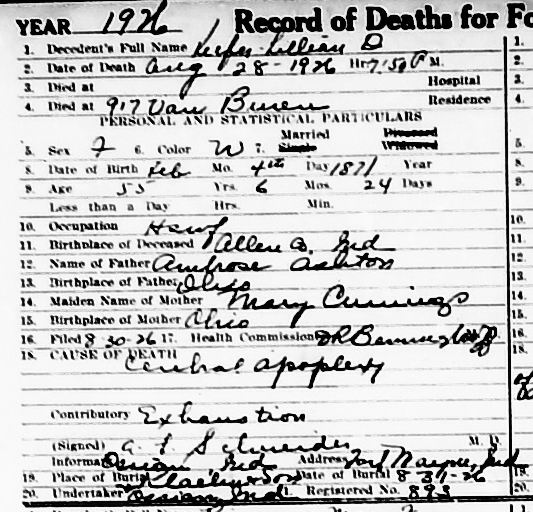 YEAR 1926 Record of Deaths for Fo
1. Decedent's Full Name Lillian D
2. Date of Death Aug 28-1926 Hr. 7:50 P M.
3. Died at Hospital
4. Died at 917 Van Buren Residence
PERSONAL AND STATISTICAL PARTICULARS
Married Divorced
5. Sex F 6. Color W 7. Single Widowed
8. Date of Birth Feb Mo. 4th Day 1871 Year
9. Age 55 Yrs. 6 Mos. 24 Days
Less than a Day Hrs. Min.
10. Occupation Hswf
11. Birthplace of Deceased Allen Co. Ind
12. Name of Father Ambrose Ashton
13. Birthplace of Father Ohio
14. Maiden Name of Mother Mary Cumings
15. Birthplace of Mother Ohio
16. Filed 8-30-26 17. Health Commissioner
18. CAUSE OF DEATH
Cerebral apoplexy
Contributory Exhaustion
(Signed) M. D.
Informant Ossian, Ind Address Fort Wayne, Ind
19. Place of Burial Date of Burial 8-31-26
20. Undertaker Ossian, Ind Registered No. 893